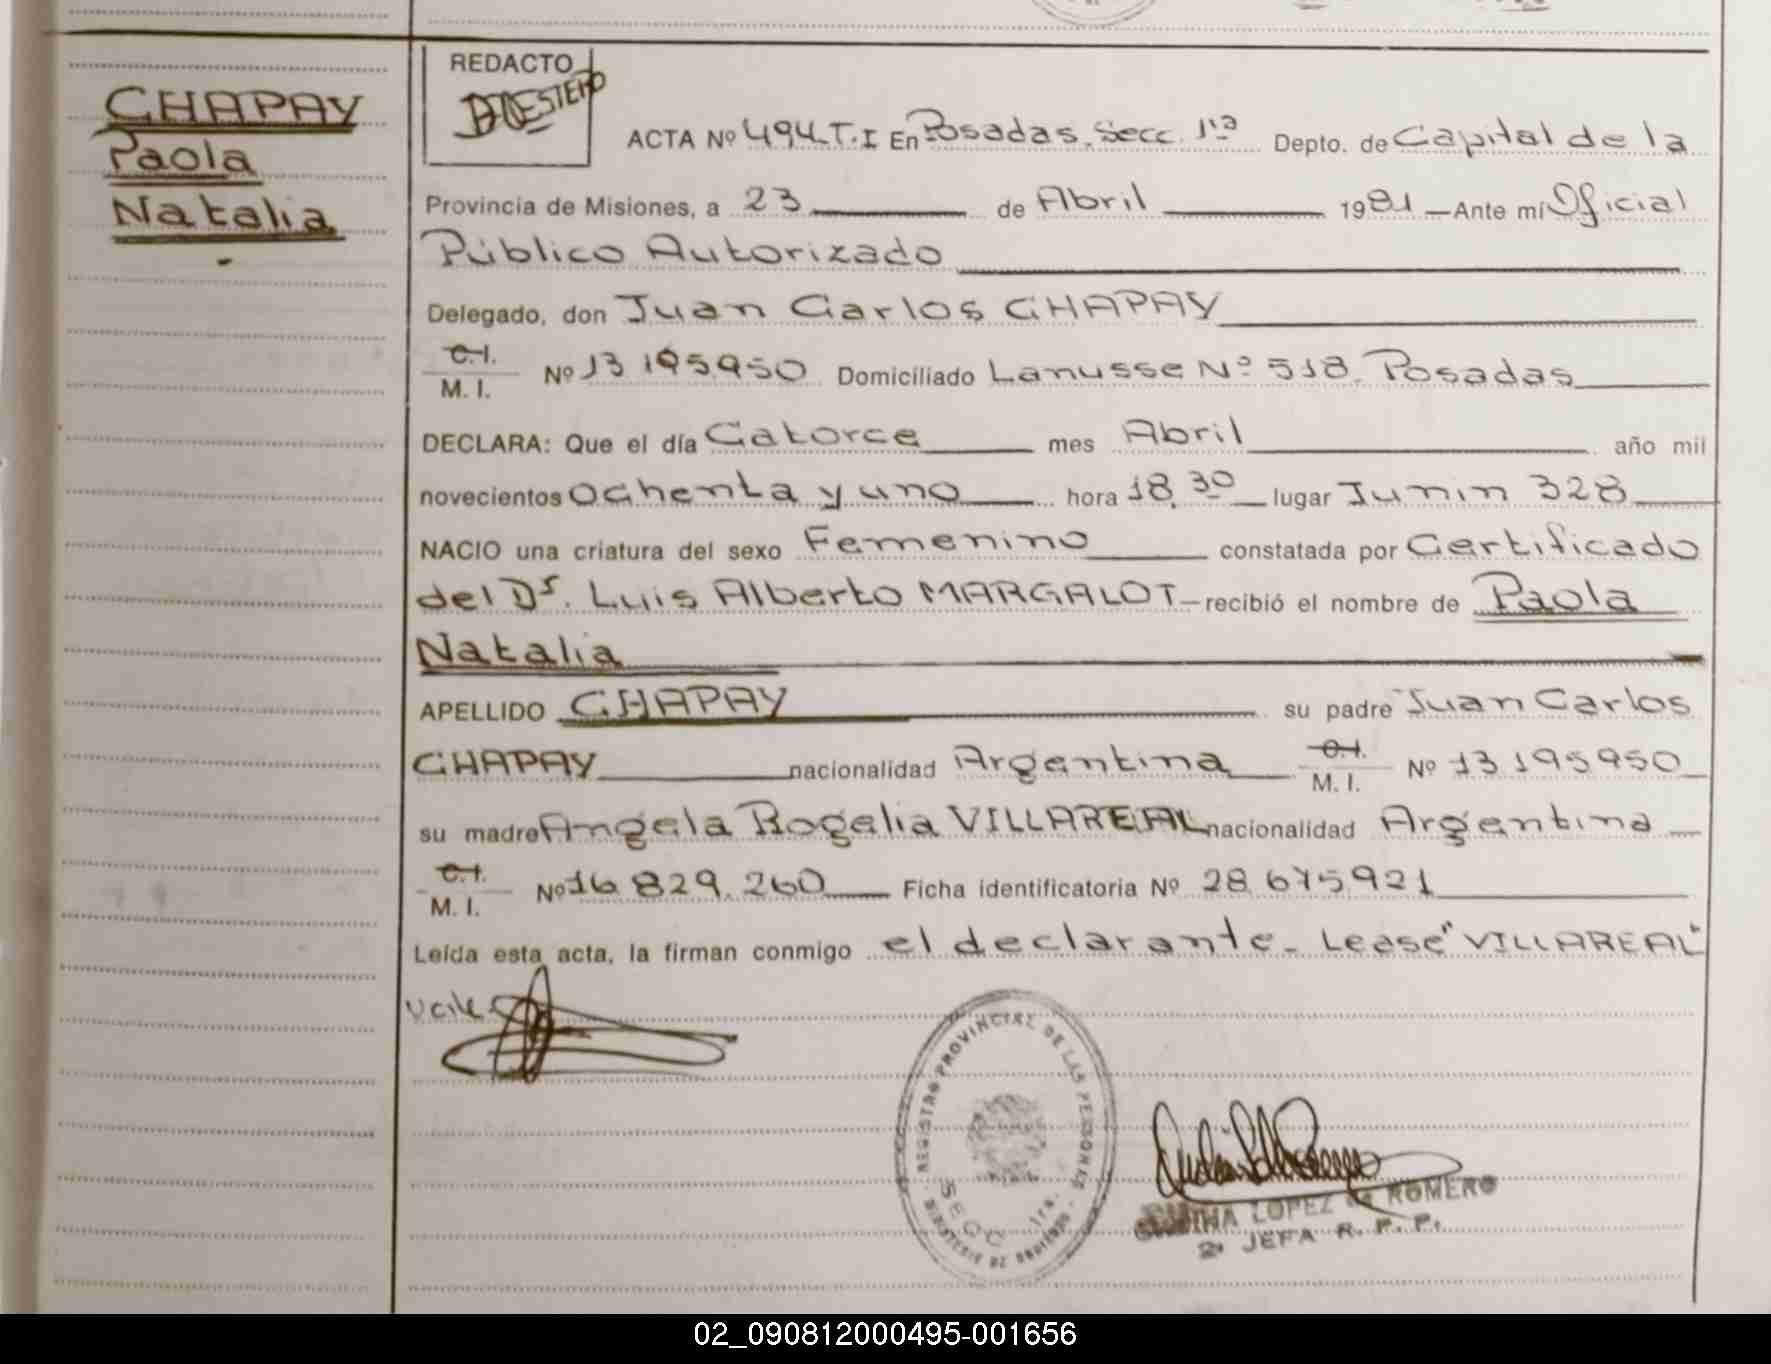 CHAPAY
Paola
Natalia
REDACTO
ACTA Nº 494.T.I En Posadas. Secc. 1ra Depto. de Capital de la
Provincia de Misiones, a 23 de Abril 1981 — Ante mí Oficial
Público Autorizado
Delegado, don Juan Carlos CHAPAY
C.I.
M. I. Nº 13195950 Domiciliado Lanusse Nº 518. Posadas
DECLARA: Que el día Catorce mes Abril año mil
novecientos ochenta y uno hora 18,30 lugar Junin 328
NACIO una criatura del sexo Femenino constatada por Certificado
del Dr. Luis Alberto MARGALOT — recibió el nombre de Paola
Natalia
APELLIDO CHAPAY su padre Juan Carlos
CHAPAY nacionalidad Argentina C.I.
M. I. Nº 13195950
su madre Angela Rogelia VILLAREAL nacionalidad Argentina
C.I.
M. I. Nº 16.829.260 Ficha identificatoria Nº 28.675.921
Leída esta acta, la firman conmigo el declarante - Lease "VILLAREAL"
Vale
REGISTRO PROVINCIAL DE LAS PERSONAS
SECC. 1ra.
LOPEZ de ROMERO
2º JEFA R. P. P.
02_090812000495-001656